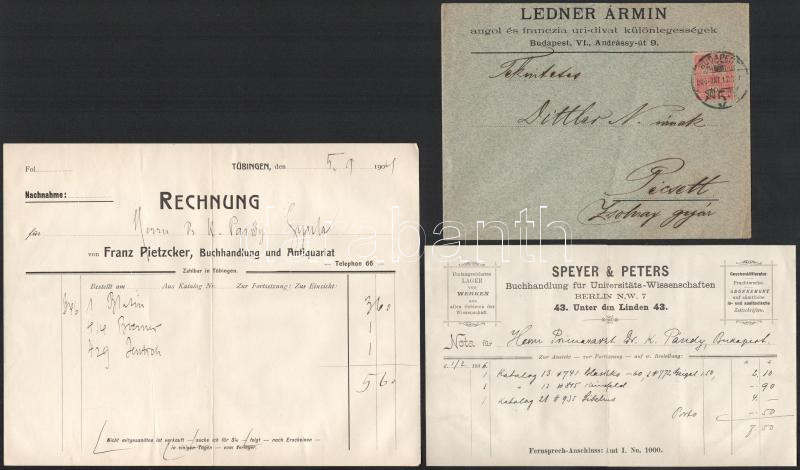 Fol.
TÜBINGEN, den 5. 9 1904
Nachnahme:
RECHNUNG
für Herrn Dr K. Pándy, Gyula
von Franz Pietzcker, Buchhandlung und Antiquariat
Telephon 66
Zahlbar in Tübingen.
Bestellt am Aus Katalog Nr. Zur Fortsetzung: Zur Einsicht:
346 1 3 60
1
429 1
5 60
Nicht mitgesandtes ist verkauft — suche ich für Sie — folgt — nach Erscheinen —
in einigen Tagen — vom Verleger.
LEDNER ÁRMIN
angol és franczia uri-divat különlegességek
Budapest, VI., Andrássy-út 9.
BUDAPEST
Tekintetes
Dittler N. úrnak
Pécsett
Zsolnay gyár
Umfangreichstes
LAGER
von
WERKEN
aus
allen Gebieten der
Wissenschaft.
SPEYER & PETERS
Buchhandlung für Universitäts-Wissenschaften
BERLIN N.W. 7
43. Unter den Linden 43.
Geschenklitteratur.
Prachtwerke.
ABONNEMENT
auf sämtliche
in- und ausländische
Zeitschriften.
Nota für Herrn Primararzt Dr. K. Pándy, Budapest.
Zur Ansicht — zur Fortsetzung — auf w. Bestellung:
1 Katalog 13 #741 Blaschko —60, #772 Geigel 1.50, 2.10
1 " 12 #845 —90
1 Katalog 21 #935 Sibelius 4.—
Porto —.50
7.50
Fernsprech-Anschluss: Amt I. No. 1000.
darabanth